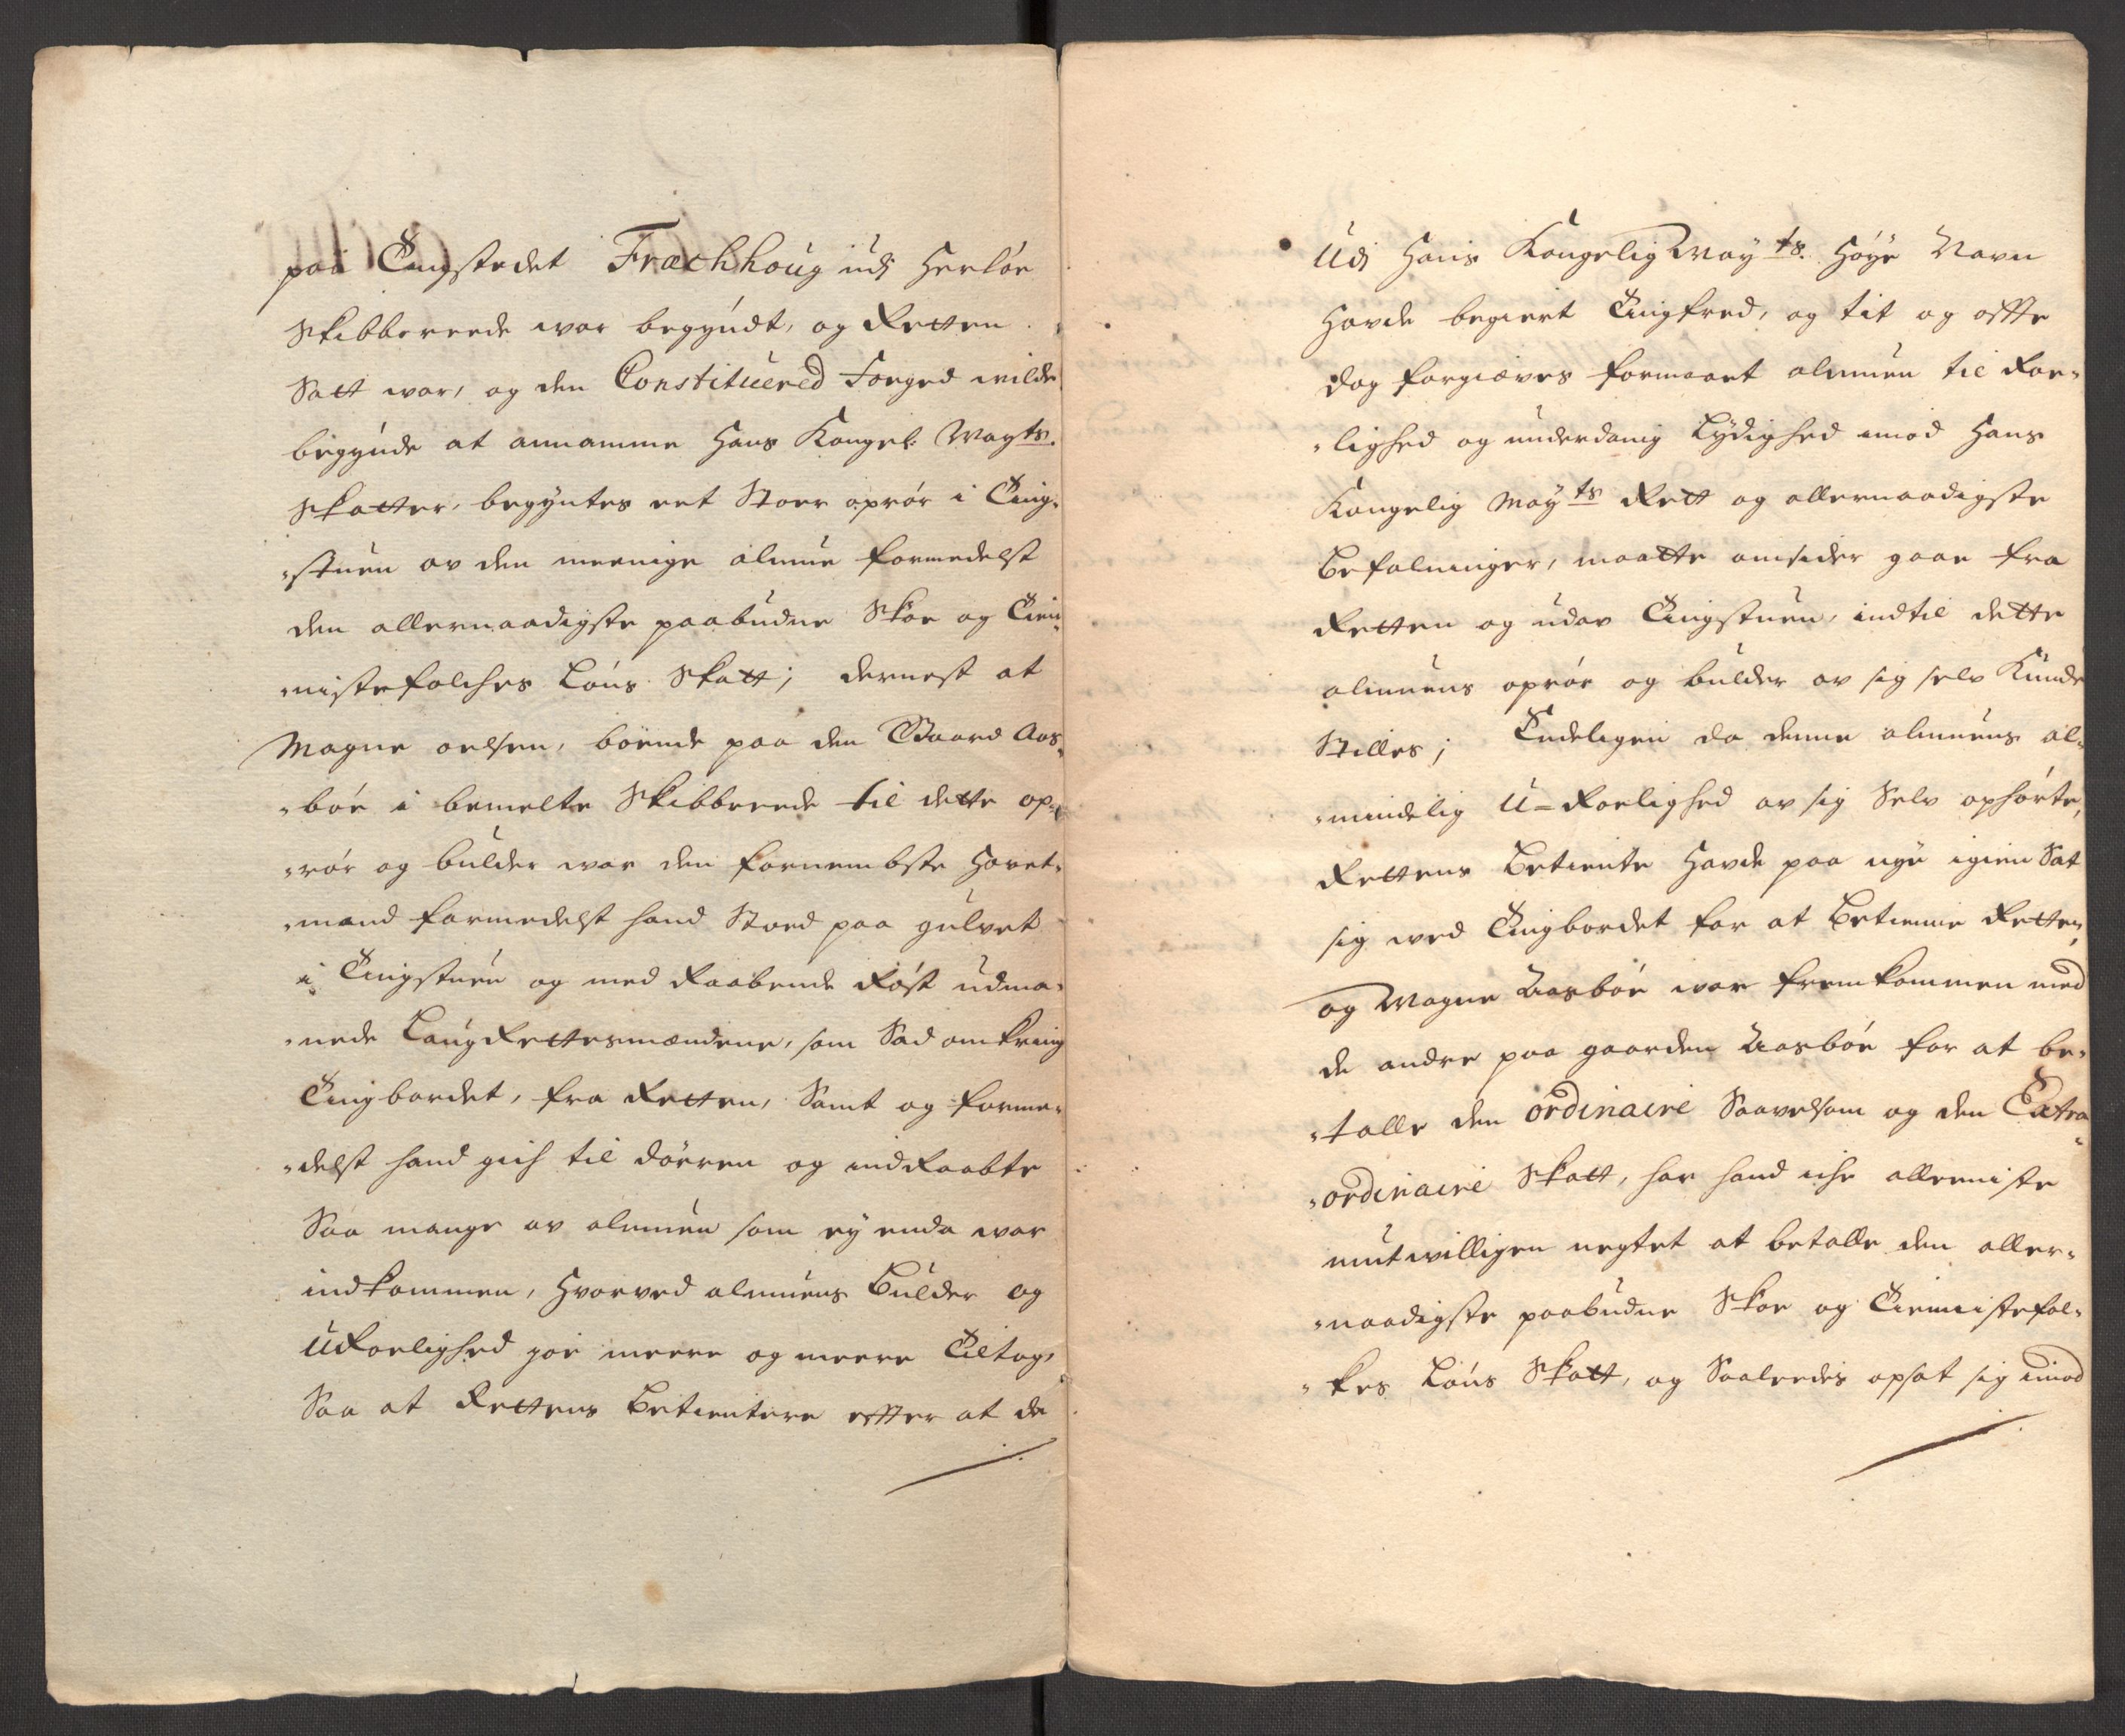 paa Tingstedet Fræchhoug udj Herløe
Skibberrede war begyndt, og Retten
Satt war, og den Constituered Foeged wilde
begynde at annamme Hans Kongel: Mayts.
Skatter, begyntes eet Stoer oprør i Ting-
"stuen av den meenige almue formedelst
den allernaadigste paabudne Skoe og Tien-
"nistefolches Løns Skatt; dernest at
Magne oelsen, boende paa den Gaard Aas-
"bøe i bemelte Skibberede til dette op-
"rør og bulder war den fornembste Hovet-
"mand formedelst hand Stoed paa gulvet
i Tingstuen og med Raabende Røst udma-
"nede LaugRettesmændene, som Sad omkring
Tingbordet, fra Retten, Samt og forme-
"delst hand gich til dørren og indRaabte
Saa mange av almuen som ey enda war
indkommen, Hvorved almuens Bulder og
URoelighed joe meere og meere Tiltog,
Saa at Rettens Betientere effter at de
Udj Hans Kongelig Mayts. Høye Navn
Havde begiert Tingfred, og tit og offte
dog forgiæves formaaet almuen til Roe-
"lighed og underdanig Lydighed imod Hans
Kongelig Mayts Rett og allernaadigste
Befalninger, maatte omsider gaae fra
Retten og udav Tingstuen, indtil dette
almuens oprør og bulder av sig selv Kunde
Stilles; Endeligen da denne almuens al-
"mindelig U-Roelighed av sig Selv ophørte,
Rettens Betiente Havde paa nye igien Sat
sig wed Tingbordet for at Betienne Retten,
og Magne Aasbøe war fremkommen med
de andre paa gaarden Aasbøe for at be-
"talle den ordinaire Saavelsom og den Extra
"ordinaire Skatt, har hand iche alleeniste
mutwilligen negtet at betalle den aller-
"naadigste paabudne Skoe og Tiennistefol-
"kes Løns Skatt, og Saaleedes opsat sig imod